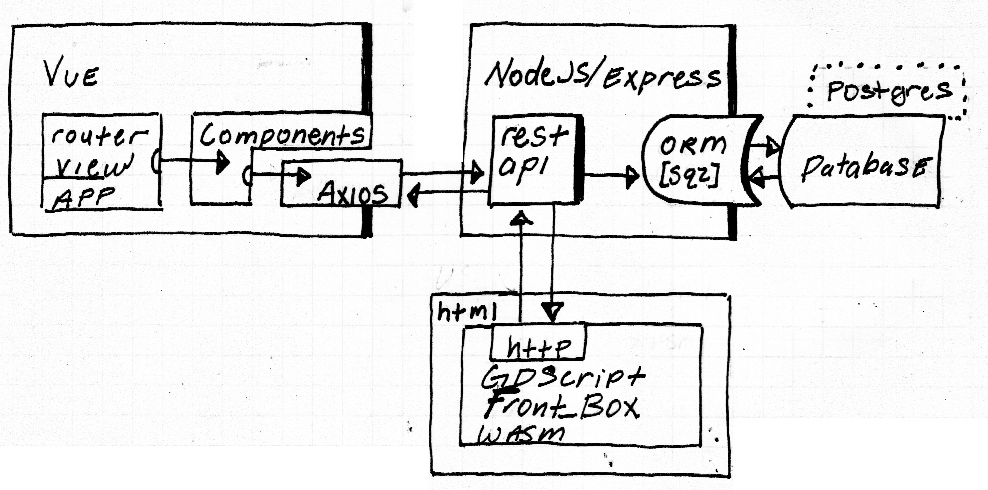 VUE
router
view
APP
Components
Axios
NodeJS/Express
rest
api
ORM
[sqz]
Postgres
Database
html
http
GDScript
Front_Box
WASM